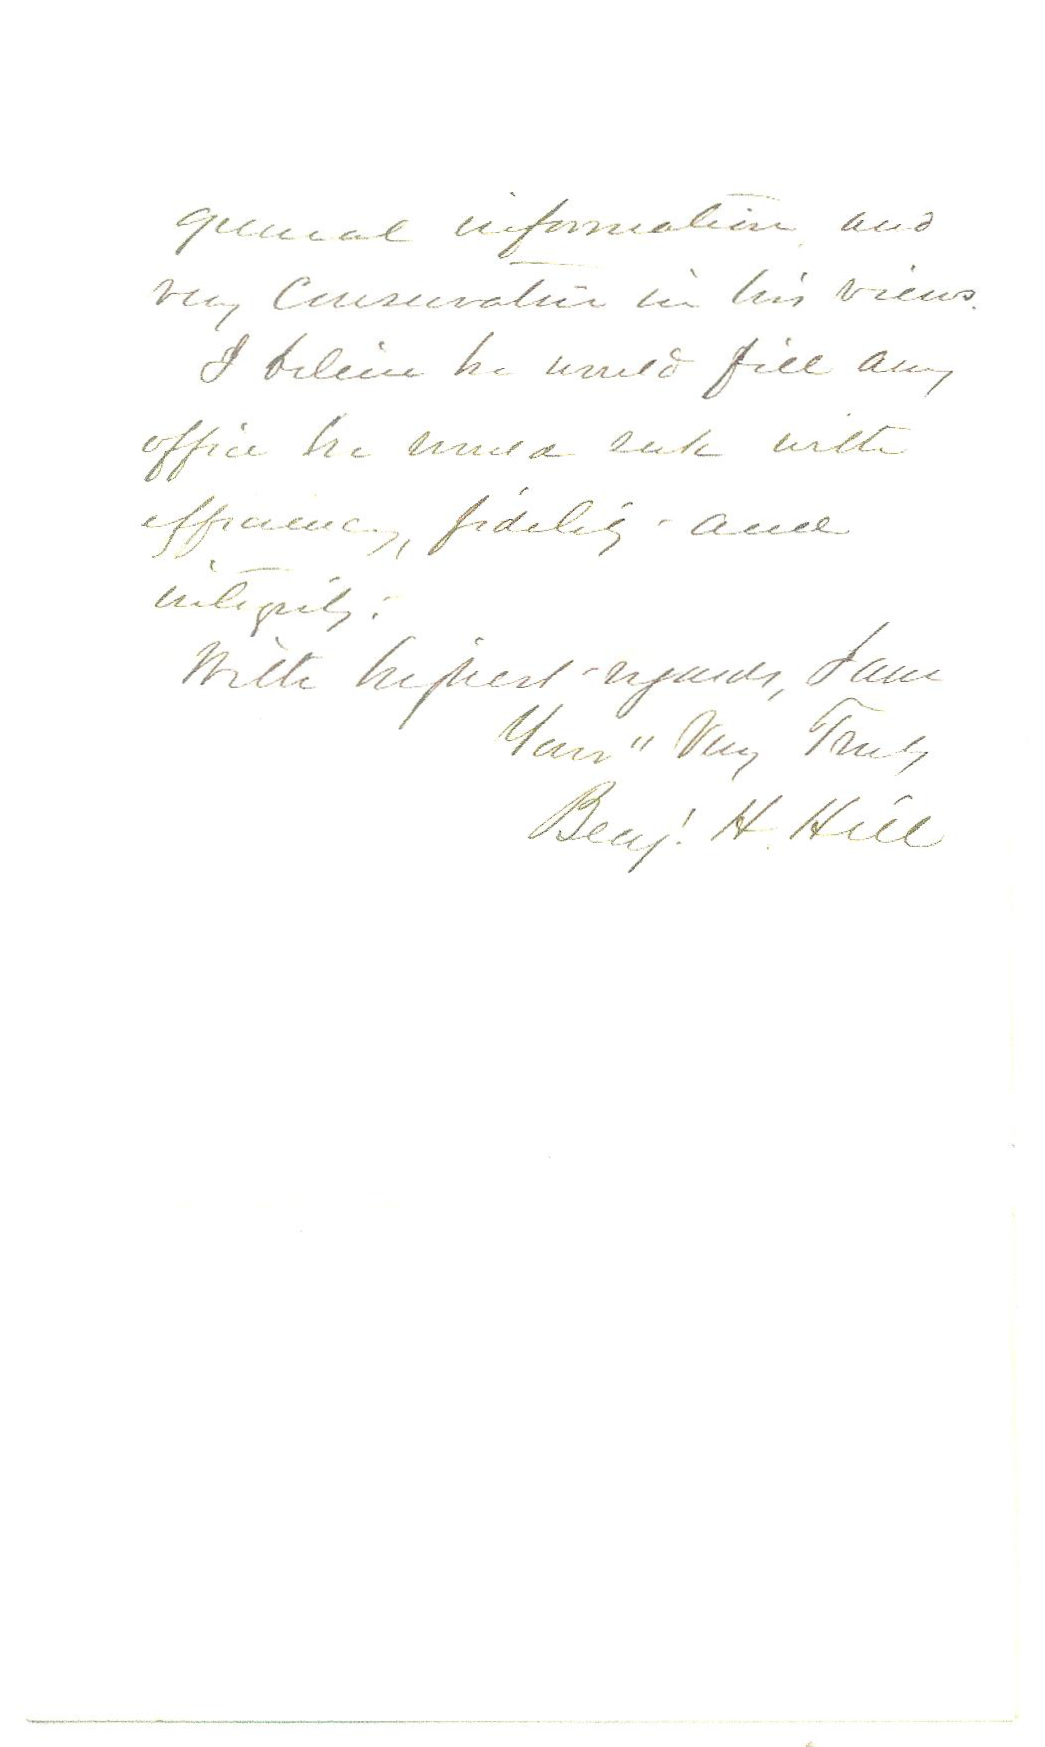 general information and
very Conservative in his views.
I believe he would fill any
office he would seek with
efficiency, fidelity and
integrity.
With highest regards, I am
Yours Very Truly
Benj. H. Hill